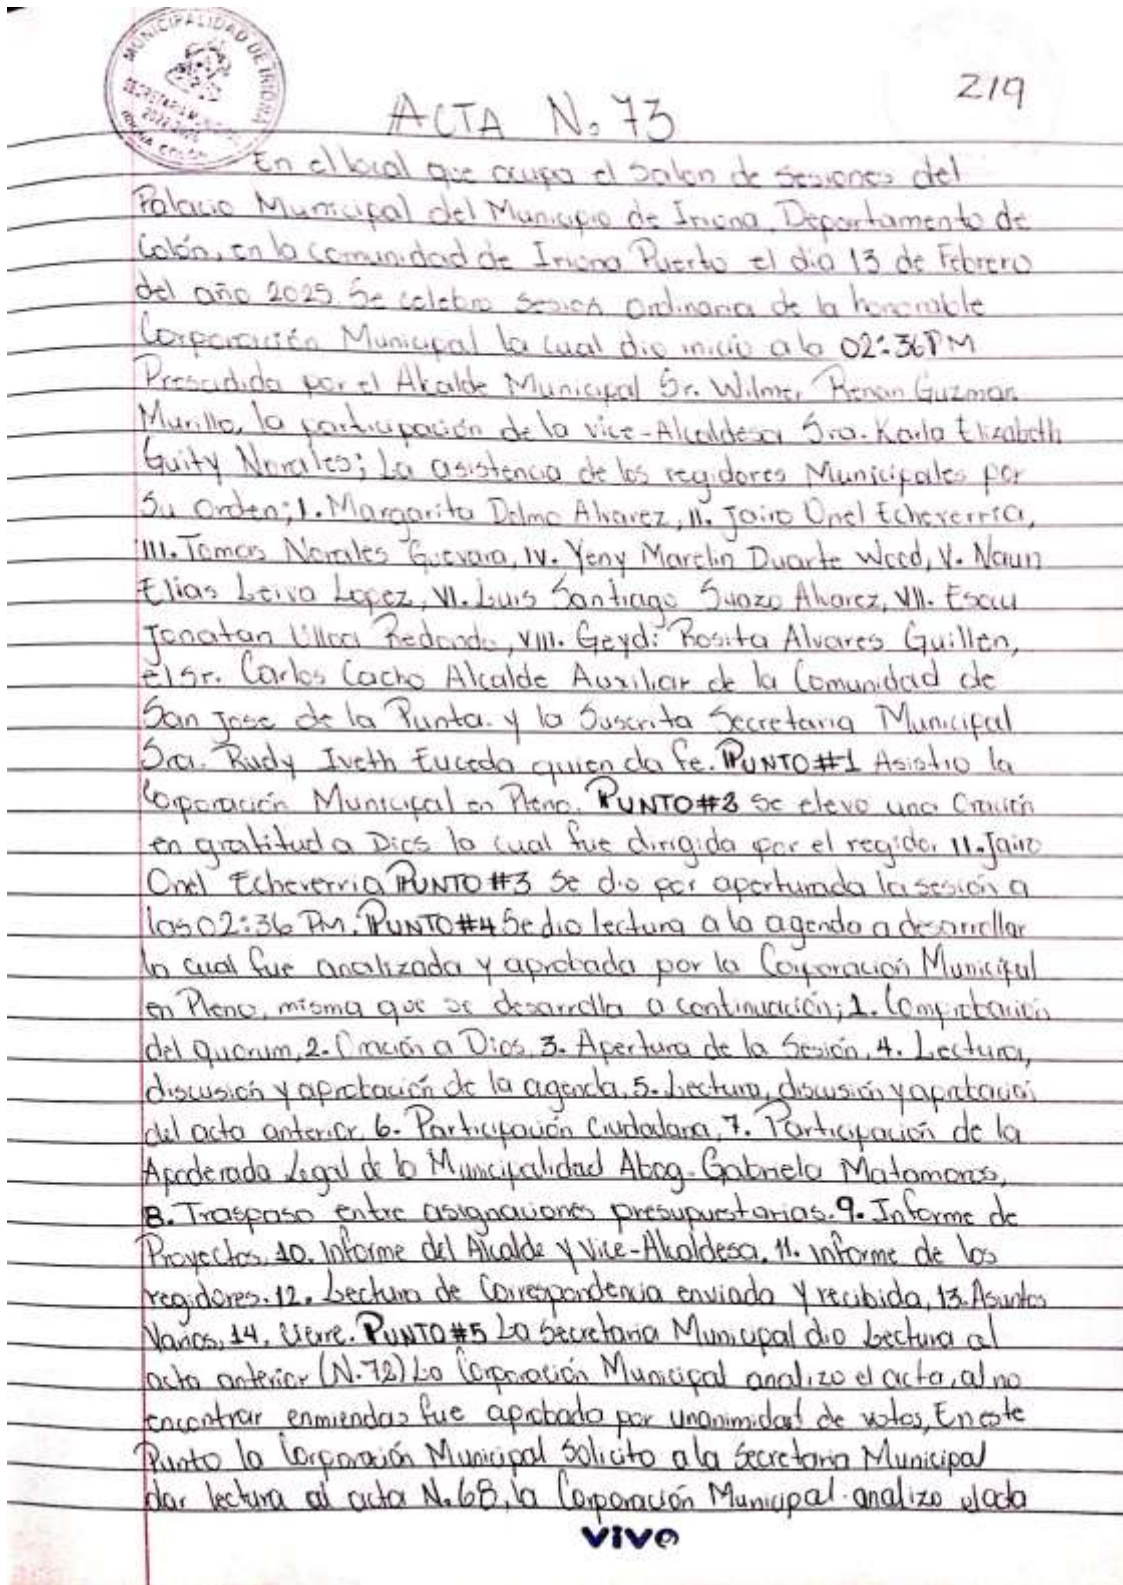 MUNICIPALIDAD DE IRIONA
SECRETARIA MUNICIPAL
2022-2026
IRIONA COLÓN
219
ACTA No 73
En el local que ocupa el Salon de Sesiones del
Palacio Municipal del Municipio de Iriona, Departamento de
Colón, en la comunidad de Iriona Puerto el dia 13 de Febrero
del año 2025. Se celebro Sesion Ordinaria de la honorable
Corporación Municipal la cual dio inicio a la 02:36 PM
Presidida por el Alcalde Municipal Sr. Wilmer Renan Guzman
Murillo, la participación de la vice-Alcaldesa Sra. Karla Elizabeth
Guity Norales; La asistencia de los regidores Municipales por
Su Orden; I. Margarita Dolmo Alvarez, II. Jairo Onel Echeverría,
III. Tomas Norales Guevara, IV. Yeny Marelin Duarte Wood, V. Naun
Elias Leiva Lopez, VI. Luis Santiago Suazo Alvarez, VII. Esau
Jonatan Ulloa Redondo, VIII. Geydi Rosita Alvares Guillen,
el Sr. Carlos Cacho Alcalde Auxiliar de la Comunidad de
San Jose de la Punta. y la Suscrita Secretaria Municipal
Sra. Rudy Iveth Euceda quien da fe. PUNTO #1 Asistio la
Corporación Municipal en Pleno. PUNTO #2 Se elevo una Oración
en gratitud a Dios la cual fue dirigida por el regidor II. Jairo
Onel Echeverria PUNTO #3 Se dio por aperturada la sesión a
las 02:36 PM. PUNTO #4 Se dio lectura a la agenda a desarrollar
la cual fue analizada y aprobada por la Corporación Municipal
en Pleno, misma que se desarrolla a continuación; 1. Comprobación
del quorum, 2. Oración a Dios, 3. Apertura de la Sesión, 4. Lectura,
discusión y aprobación de la agenda, 5. Lectura, discusión y aprobación
del acta anterior, 6. Participación Ciudadana, 7. Participación de la
Apoderada Legal de la Municipalidad Abog. Gabriela Matamoros,
8. Traspaso entre asignaciones presupuestarias. 9. Informe de
Proyectos. 10. Informe del Alcalde y Vice-Alcaldesa. 11. informe de los
regidores. 12. Lectura de Correspondencia enviada y recibida, 13. Asuntos
Varios, 14. Cierre. PUNTO #5 La Secretaria Municipal dio Lectura al
acta anterior (N.72) La Corporación Municipal analizo el acta, al no
encontrar enmiendas fue aprobada por unanimidad de votos, En este
Punto la Corporación Municipal Solicito a la Secretaria Municipal
dar lectura al acta N.68, la Corporación Municipal analizo el acta
vivo